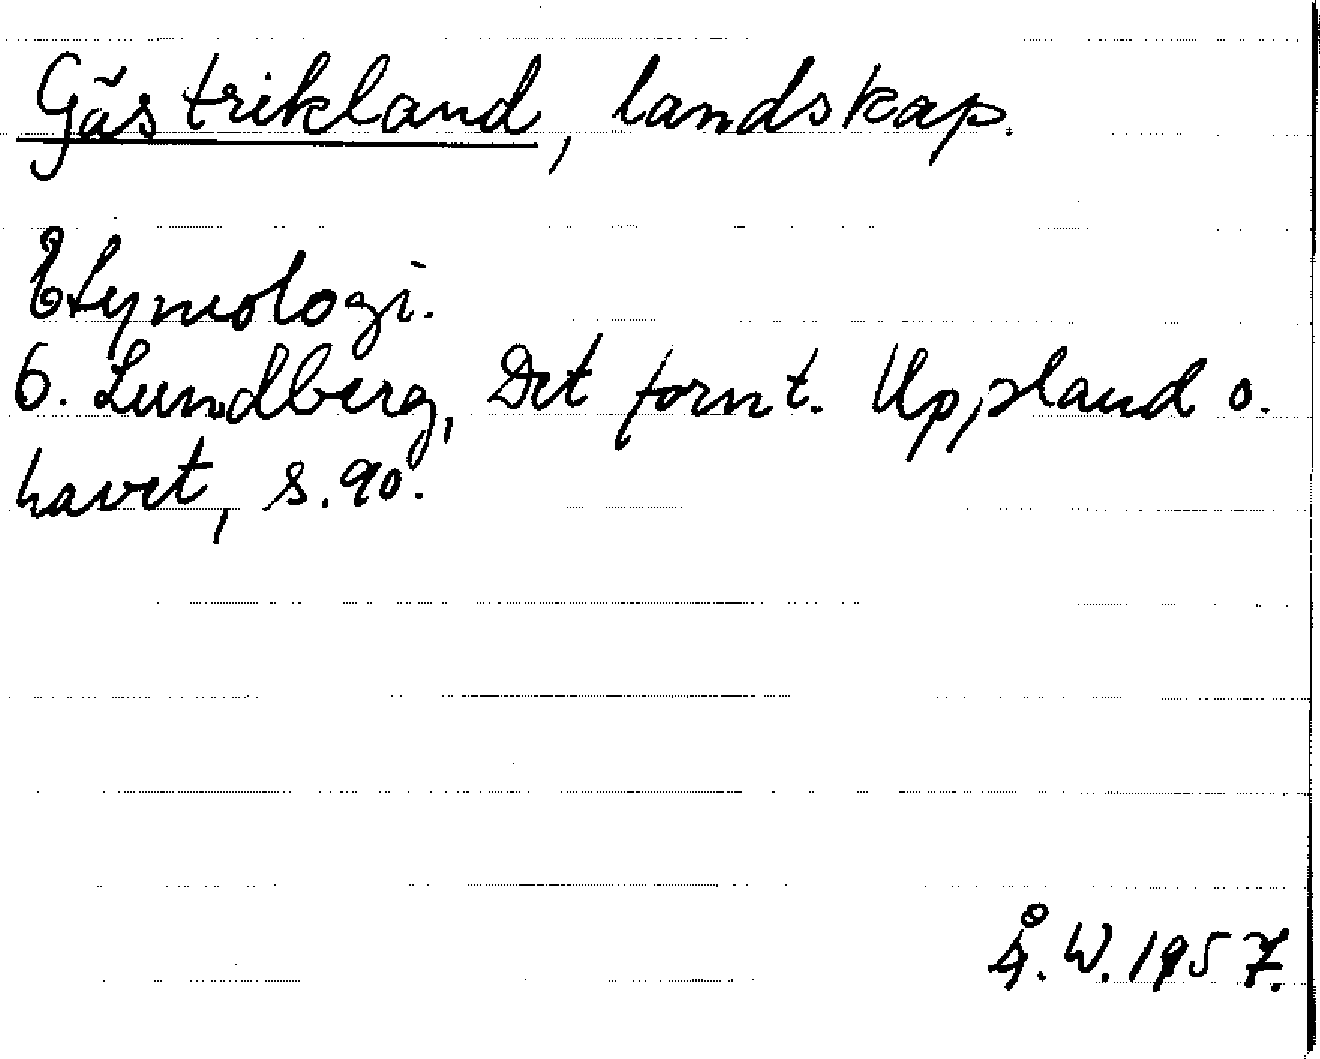 Gästrikland, landskap.
Etymologi.
O. Lundberg, Det fornt. Uppland o.
havet, s. 90.
Å. W. 1957.